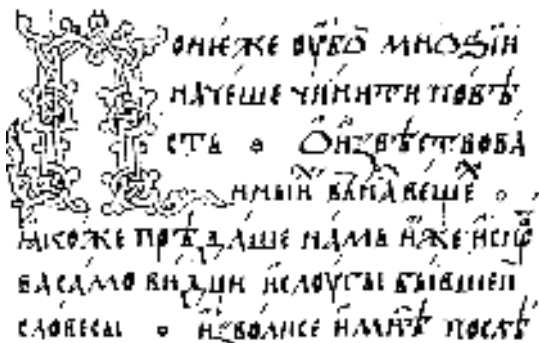 Понеже оубо мнѡѕи
начеше чинити повѣ
сть о извѣствова
нныи въ насъ вещехъ
ꙗкоже прѣдаше намь иже испръ
ва самовидци и слоугы бывшеи
словесы изволисе и мнѣ послѣ